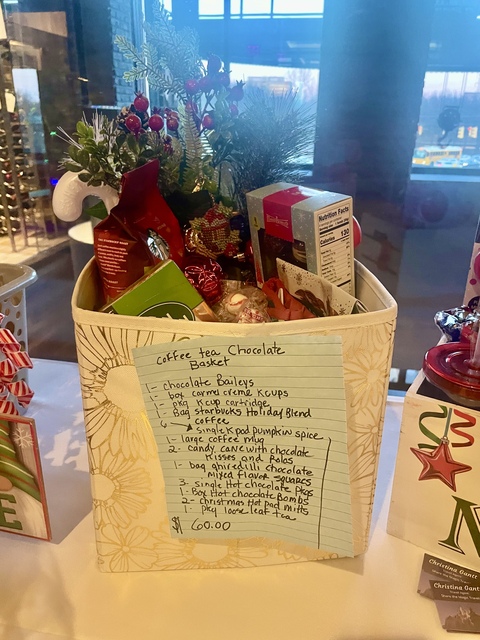 Coffee tea Chocolate
Basket
1- chocolate Baileys
1- box carmel creme Kcups
1- pkg Kcup cartridge
1- Bag Starbucks Holiday Blend
coffee
6 → Single K pod pumpkin spice
1- large coffee mug
2- candy cane with chocolate
Kisses and Rolos
1- bag ghiredilli chocolate
mixed flavor squares
3- single Hot chocolate pkgs
1- Box Hot chocolate Bombs
2- christmas Hot pad mitts
1- pkg loose leaf tea
$ 60.00
Nutrition Facts
Calories 120
E
N
Christina Gantt
Christina Gantt